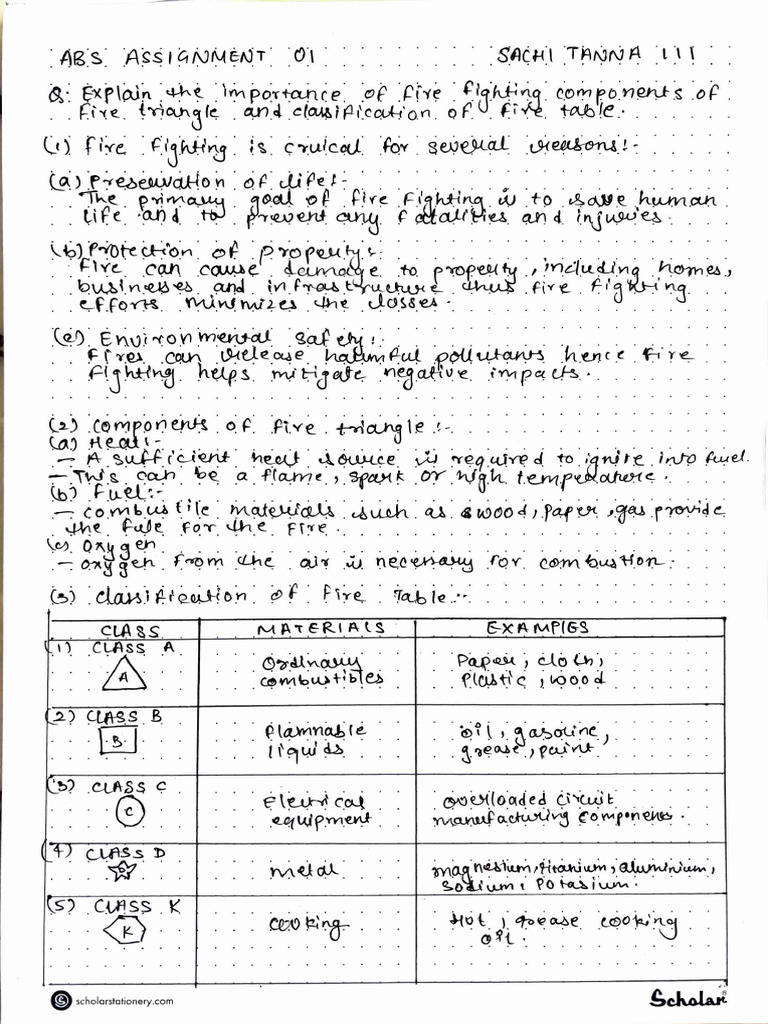 ABS ASSIGNMENT 01 SACHI TANNA 111
Q: Explain the importance of fire fighting components of
fire triangle and classification of fire table.
(1) Fire fighting is cruical for several reasons:-
(a) Preservation of life:-
The primary goal of fire fighting is to save human
life and to prevent any fatalities and injuries.
(b) Protection of property:-
Fire can cause damage to property, including homes,
businesses and infrastructure thus fire fighting
efforts minimizes the losses.
(c) Environmental safety:-
Fires can release harmful pollutants hence fire
fighting helps mitigate negative impacts.
(2) components of fire triangle:-
(a) Heat:-
- A sufficient heat source is required to ignite into fuel.
- This can be a flame, spark or high temperature.
(b) Fuel:-
- combustile materials such as wood, paper, gas provide
the fule for the fire.
(c) Oxygen
- Oxygen from the air is necessary for combustion.
(3) Classification of fire Table:-
CLASS MATERIALS EXAMPLES
(1) CLASS A
A
Ordinary combustibles
Paper, cloth,
Plastic, wood
(2) CLASS B
B
Flamnable
liquids
Oil, gasoline,
grease, paint
(3) CLASS C
C
Electrical
equipment
Overloaded circuit
manufacturing components.
(4) CLASS D
D
metal
magnesium, titanium, aluminium,
Sodium, Potasium.
(5) CLASS K
K
cooking
Hot, grease cooking
oil.
scholarstationery.com Scholar